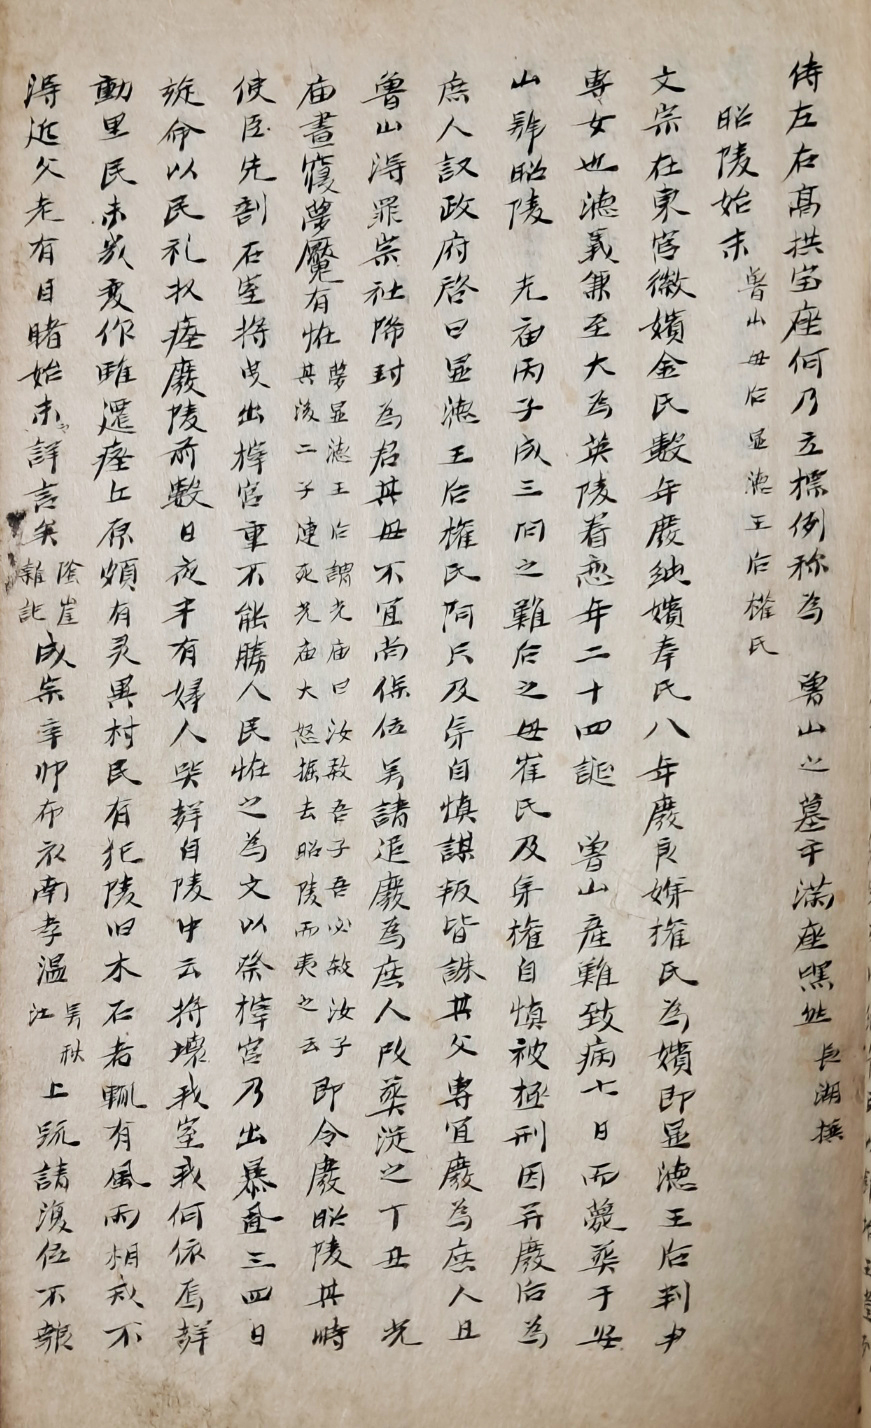 侍左右高拱宝座何乃立標例称為 魯山之墓乎滿座嘿然 長湖撰
昭陵始末 魯山母后显德王后權氏
文宗在東宮徽嬪金氏數年廢純嬪奉氏八年廢良娣權氏為嬪即显德王后判尹
專女也德義兼至大為英陵眷恋年二十四誕 魯山産難致病七日而薨葬于安
山號昭陵 光庙丙子成三問之難后之母崔氏及弟權自慎被極刑因并廢后為
庶人議政府啓曰显德王后權氏阿只及弟自慎謀叛皆誅其父專宜廢為庶人且
魯山得罪宗社降封為君其母不宜尚保位另請追廢為庶人改葬從之丁丑 光
庙晝寢夢魘有怪 夢显德王后謂光庙曰汝殺吾子吾必殺汝子其後二子連死光庙大怒掘去昭陵而夷之云 即令廢昭陵其時
使臣先剖石室將曳出梓宮重不能勝人民怪之為文以祭梓宮乃出暴置三四日
旋命以民礼收瘞廢陵前數日夜半有婦人哭声自陵中云將壞我室我何依焉声
動里民未幾变作雖還瘞上原頗有灵異村民有犯陵旧木石者輒有風雨相戒不
得近父老有目睹始末詳言矣 陰崖雜記 成宗辛卯布衣南孝温 号秋江 上疏請復位不報